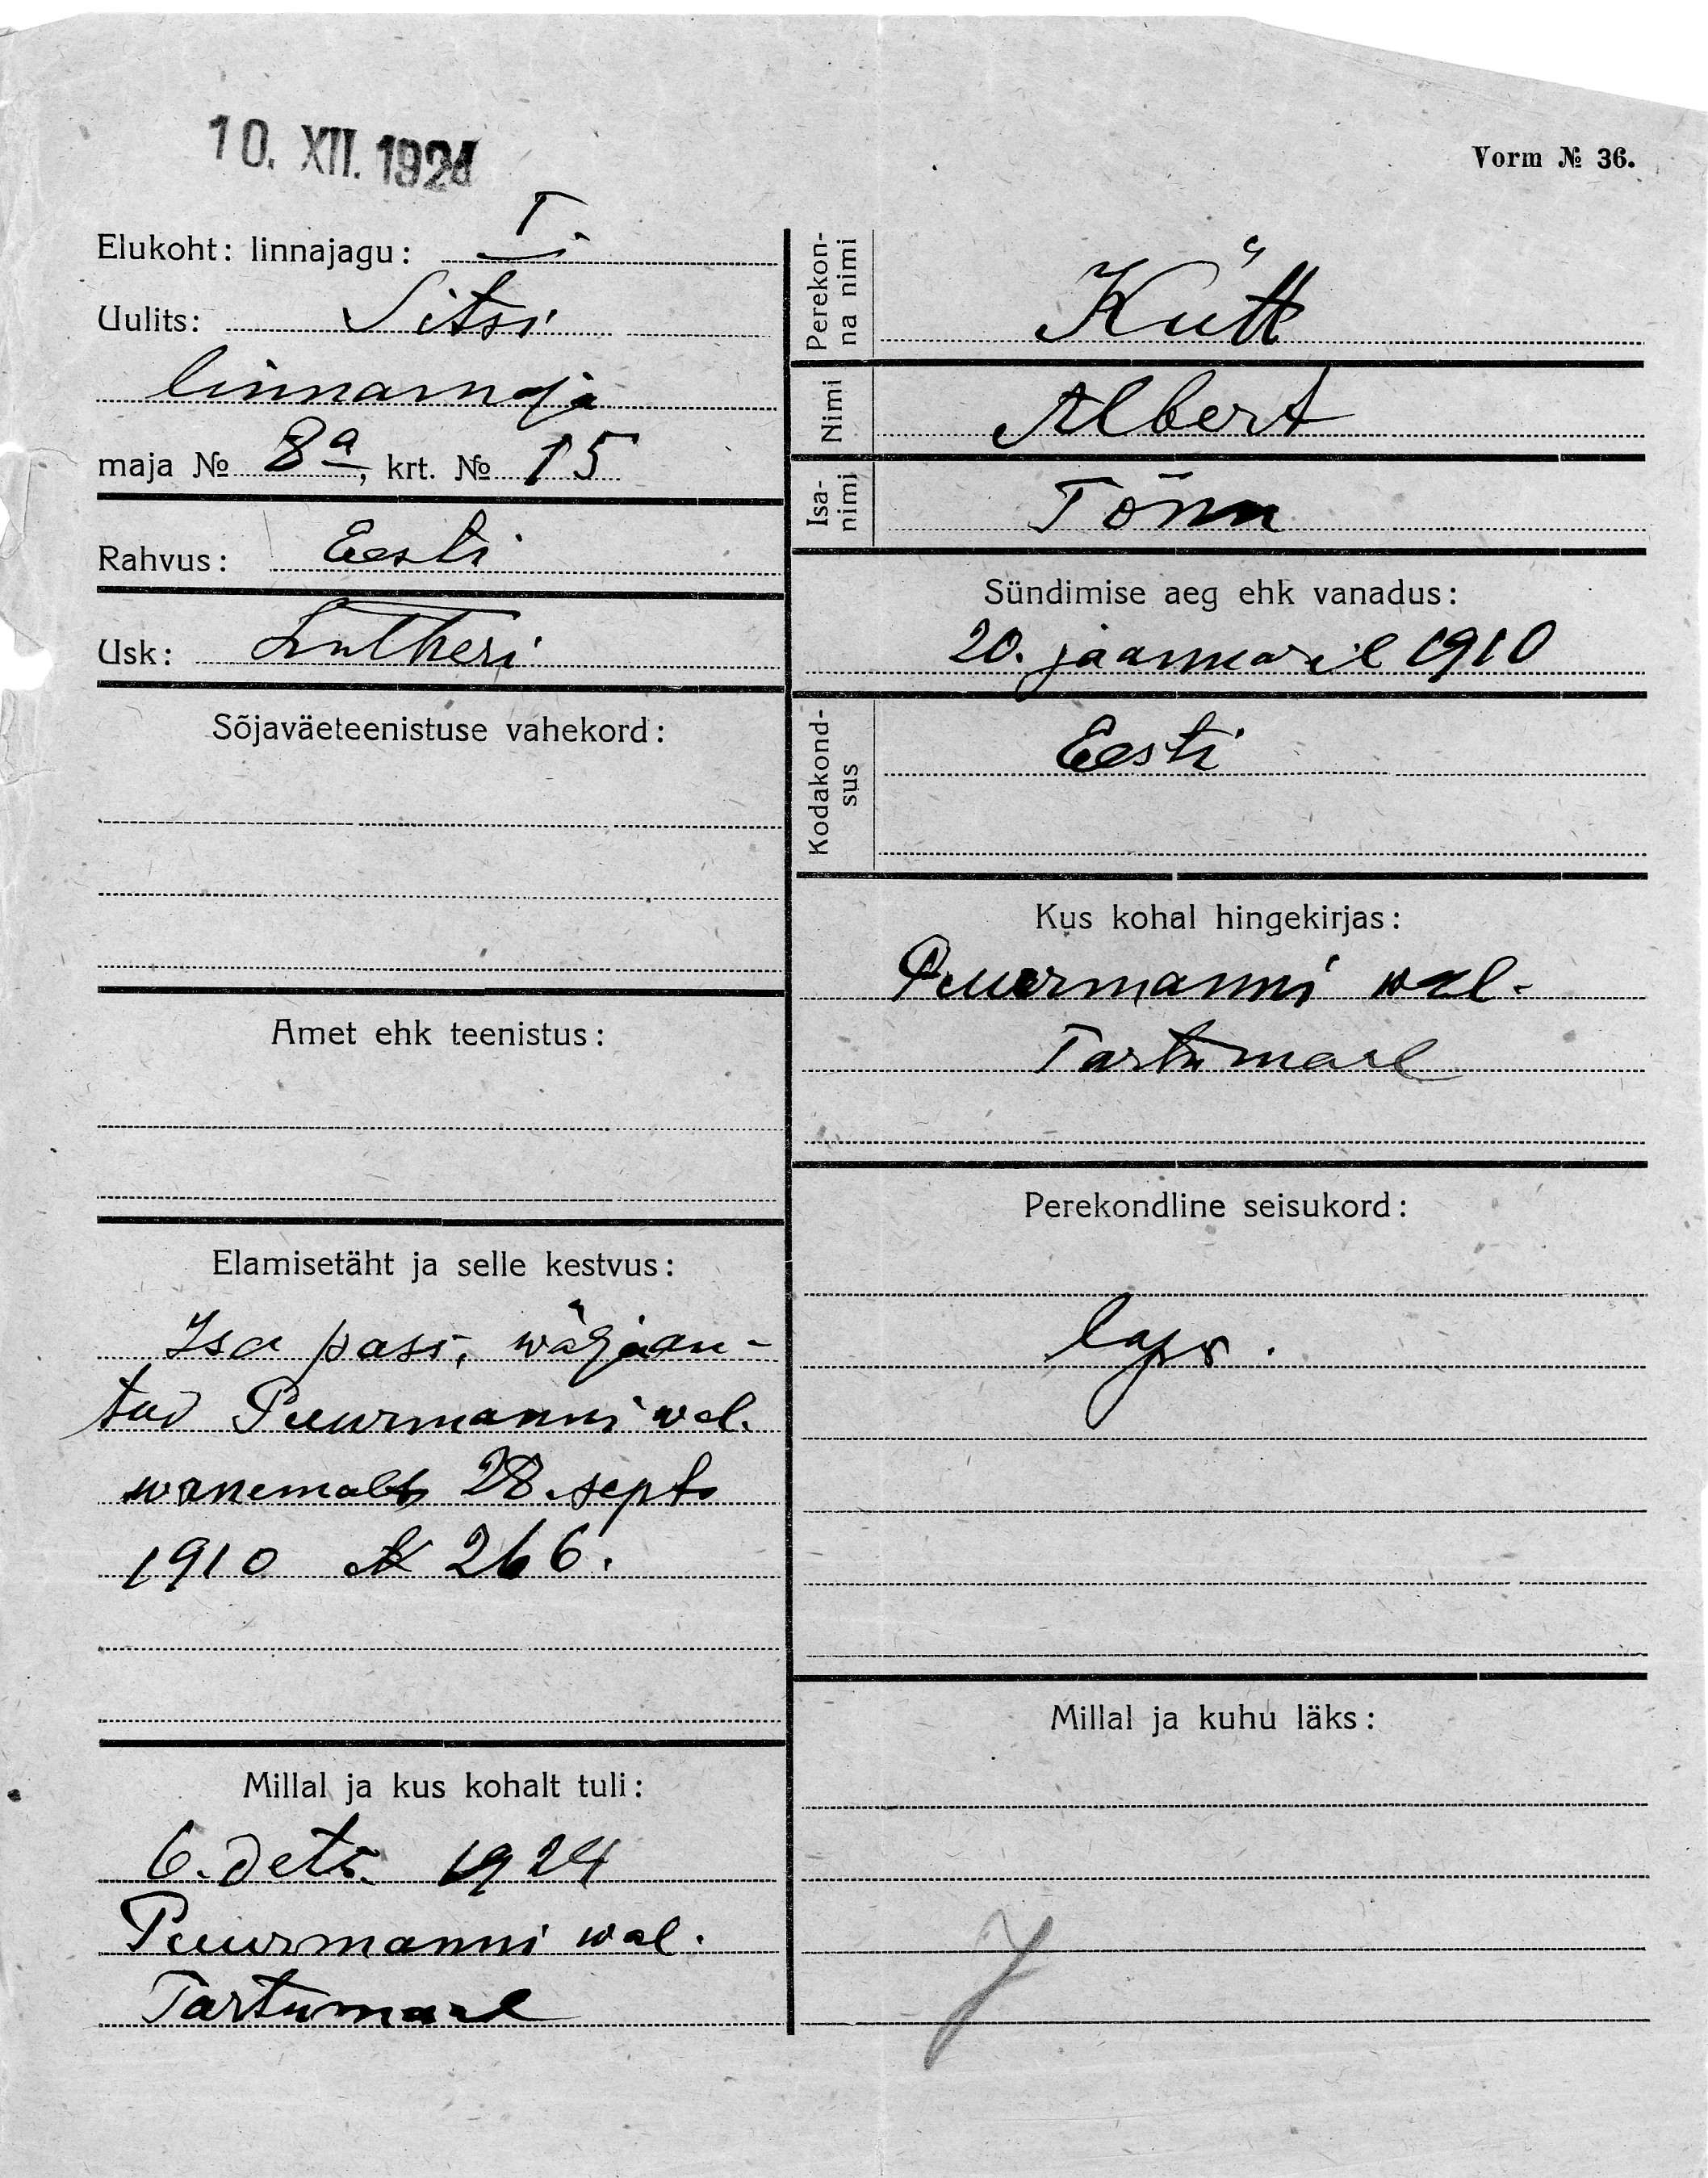 10. XII. 1924
Vorm № 36.
Elukoht: linnajagu: I
Uulits: Sitsi
linnarndja
maja № 8a, krt. № 15
Rahvus: Eesti
Usk: Lutheri
Sõjaväeteenistuse vahekord:
Amet ehk teenistus:
Elamisetäht ja selle kestvus:
Isa pass, wäljaan-
tud Puurmanni wal.
wanemalt 28. sept.
1910 № 266.
Millal ja kus kohalt tuli:
6. dets. 1924
Puurmanni wal.
Tartumaal
Perekon-
na nimi
Kütt
Nimi Albert
Isa-
nimi
Tõnu
Sündimise aeg ehk vanadus:
20. jaanuaril 1910
Kodakond-
sus
Eesti
Kus kohal hingekirjas:
Puurmanni wal.
Tartumaal
Perekondline seisukord:
laps.
Millal ja kuhu läks: